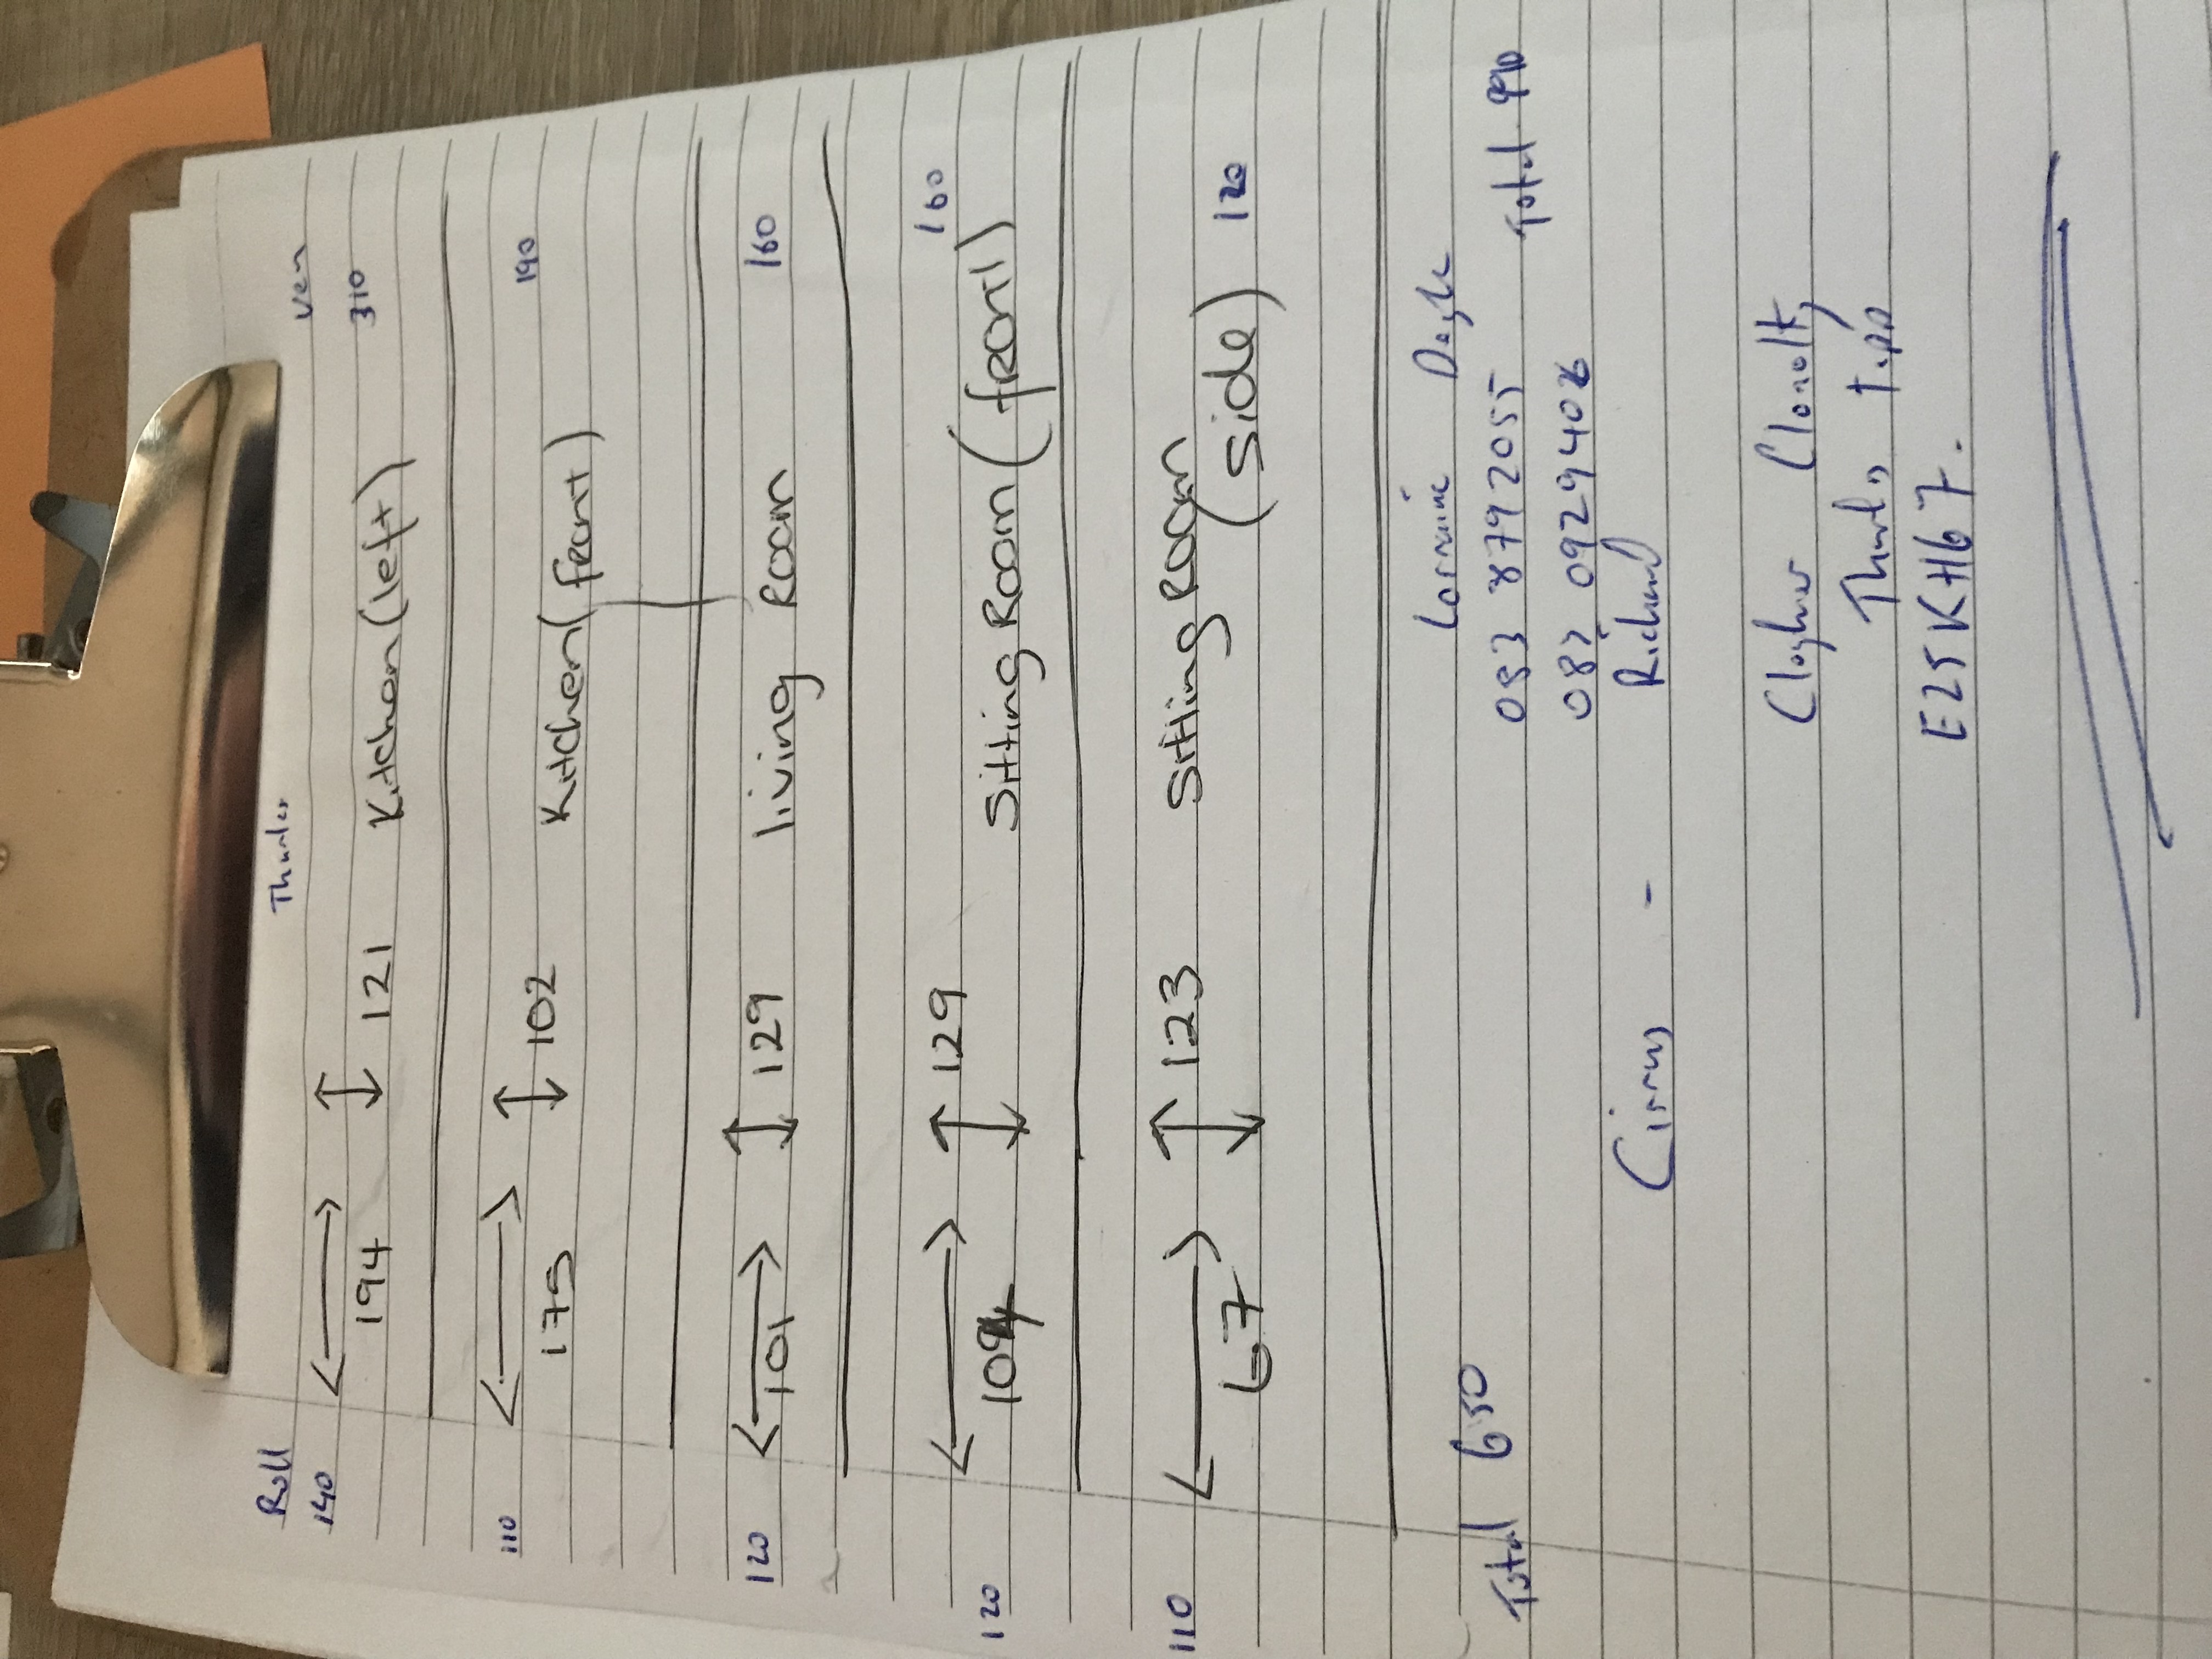 Thurles
Roll Ven
140 194 121 Kitchen (left) 310
110 175 102 Kitchen (front) 190
120 101 129 living Room 160
120 104 129 Sitting Room (front) 160
110 67 123 Sitting Room (side) 120
Lorraine Doyle
Total 650 083 8792055 Total 990
087 0929406
Cirrus - Richard
Clogher Clonoulty
Thurles Tipp
E25KH67.